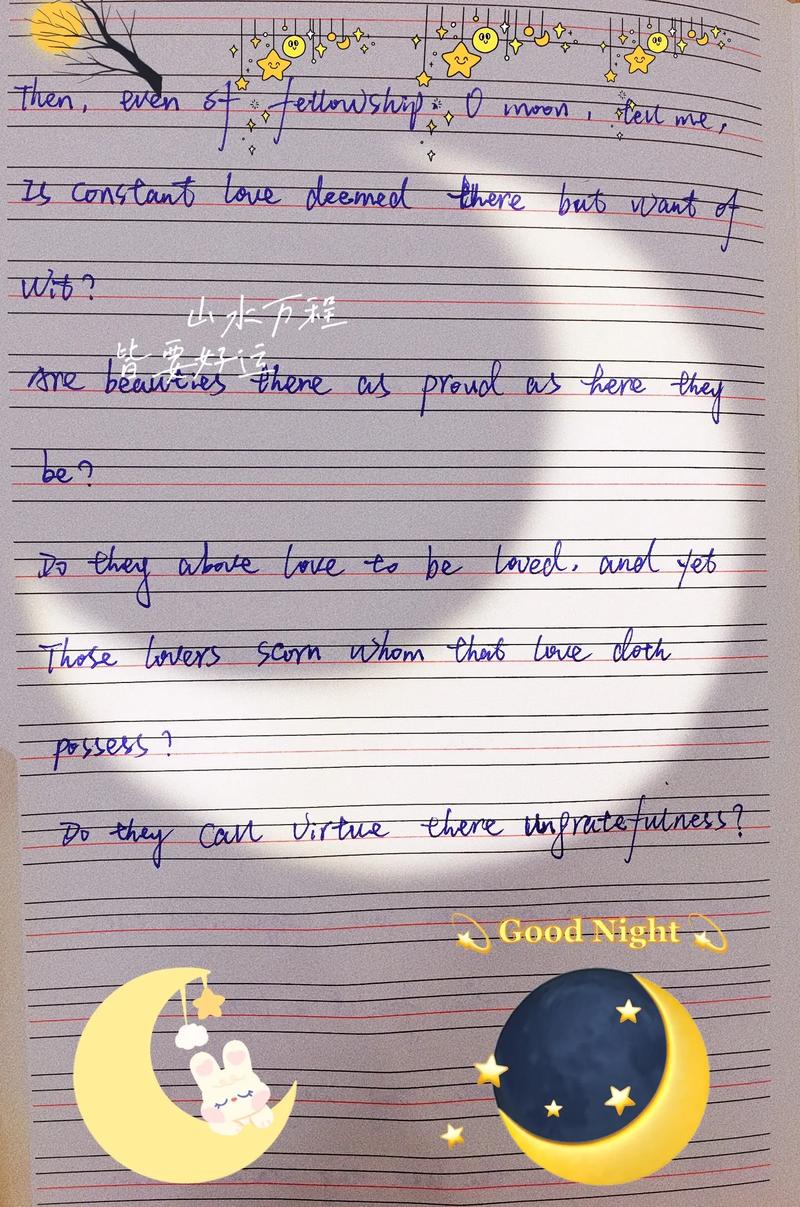 Then, even of fellowship. O moon, tell me,
Is constant love deemed there but want of
wit?
山水万程
皆要好运
Are beauties there as proud as here they
be?
Do they above love to be loved, and yet
Those lovers scorn whom that love doth
possess?
Do they call virtue there ungratefulness?
Good Night